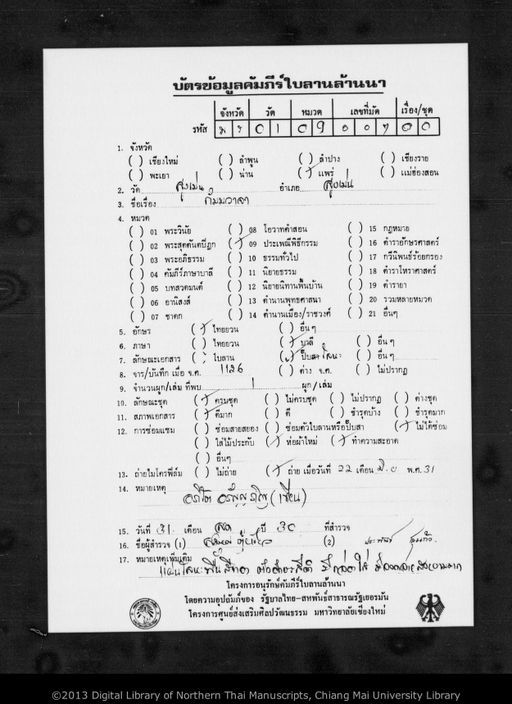 บัตรข้อมูลคัมภีร์ใบลานล้านนา
จังหวัด วัด หมวด เลขที่มัด เรื่อง/ชุด
รหัส พ ร 0 1 0 9 0 0 7 0 0
1. จังหวัด
( ) เชียงใหม่ ( ) ลำพูน ( ) ลำปาง ( ) เชียงราย
( ) พะเยา ( ) น่าน (/) แพร่ ( ) แม่ฮ่องสอน
2. วัด สูงเม่น อำเภอ สูงเม่น
3. ชื่อเรื่อง กัมมวาจา
4. หมวด
( ) 01 พระวินัย ( ) 08 โอวาทคำสอน ( ) 15 กฎหมาย
( ) 02 พระสุตตันตปิฎก (/) 09 ประเพณีพิธีกรรม ( ) 16 ตำราอักษรศาสตร์
( ) 03 พระอภิธรรม ( ) 10 ธรรมทั่วไป ( ) 17 กวีนิพนธ์ร้อยกรอง
( ) 04 คัมภีร์ภาษาบาลี ( ) 11 นิยายธรรม ( ) 18 ตำราโหราศาสตร์
( ) 05 บทสวดมนต์ ( ) 12 นิยายนิทานพื้นบ้าน ( ) 19 ตำรายา
( ) 06 อานิสงส์ ( ) 13 ตำนานพุทธศาสนา ( ) 20 รวมหลายหมวด
( ) 07 ชาดก ( ) 14 ตำนานเมือง/ราชวงศ์ ( ) 21 อื่นๆ
5. อักษร (/) ไทยยวน ( ) อื่นๆ
6. ภาษา ( ) ไทยยวน (/) บาลี ( ) อื่นๆ
7. ลักษณะเอกสาร ( ) ใบลาน (/) ( ) อื่นๆ
8. จาร/บันทึก เมื่อ จ.ศ. 1186 ( ) ต่าง จ.ศ. ( ) ไม่ปรากฏ
9. จำนวนผูก/เล่ม ที่พบ 1 ผูก/เล่ม
10. ลักษณะชุด (/) ครบชุด ( ) ไม่ครบชุด ( ) ไม่ปรากฏ ( ) ต่างชุด
11. สภาพเอกสาร (/) ดีมาก ( ) ดี ( ) ชำรุดบ้าง ( ) ชำรุดมาก
12. การซ่อมแซม ( ) ซ่อมสายสยอง ( ) ซ่อมตัวใบลานหรือปั๊บสา (/) ไม่ได้ซ่อม
( ) ใส่ไม้ประกับ (/) ห่อผ้าใหม่ (/) ทำความสะอาด
( ) อื่นๆ
13. ถ่ายไมโครฟิล์ม ( ) ไม่ถ่าย (/) ถ่าย เมื่อวันที่ 22 เดือน มิ.ย พ.ศ. 31
14. หมายเหตุ
15. วันที่ 31 เดือน ปี 30 ที่สำรวจ
16. ชื่อผู้สำรวจ (1) (2)
17. หมายเหตุเพิ่มเติม
โครงการอนุรักษ์คัมภีร์ใบลานล้านนา
โดยความอุปถัมภ์ของ รัฐบาลไทย-สหพันธ์สาธารณรัฐเยอรมัน
โครงการศูนย์ส่งเสริมศิลปวัฒนธรรม มหาวิทยาลัยเชียงใหม่
©2013 Digital Library of Northern Thai Manuscripts, Chiang Mai University Library